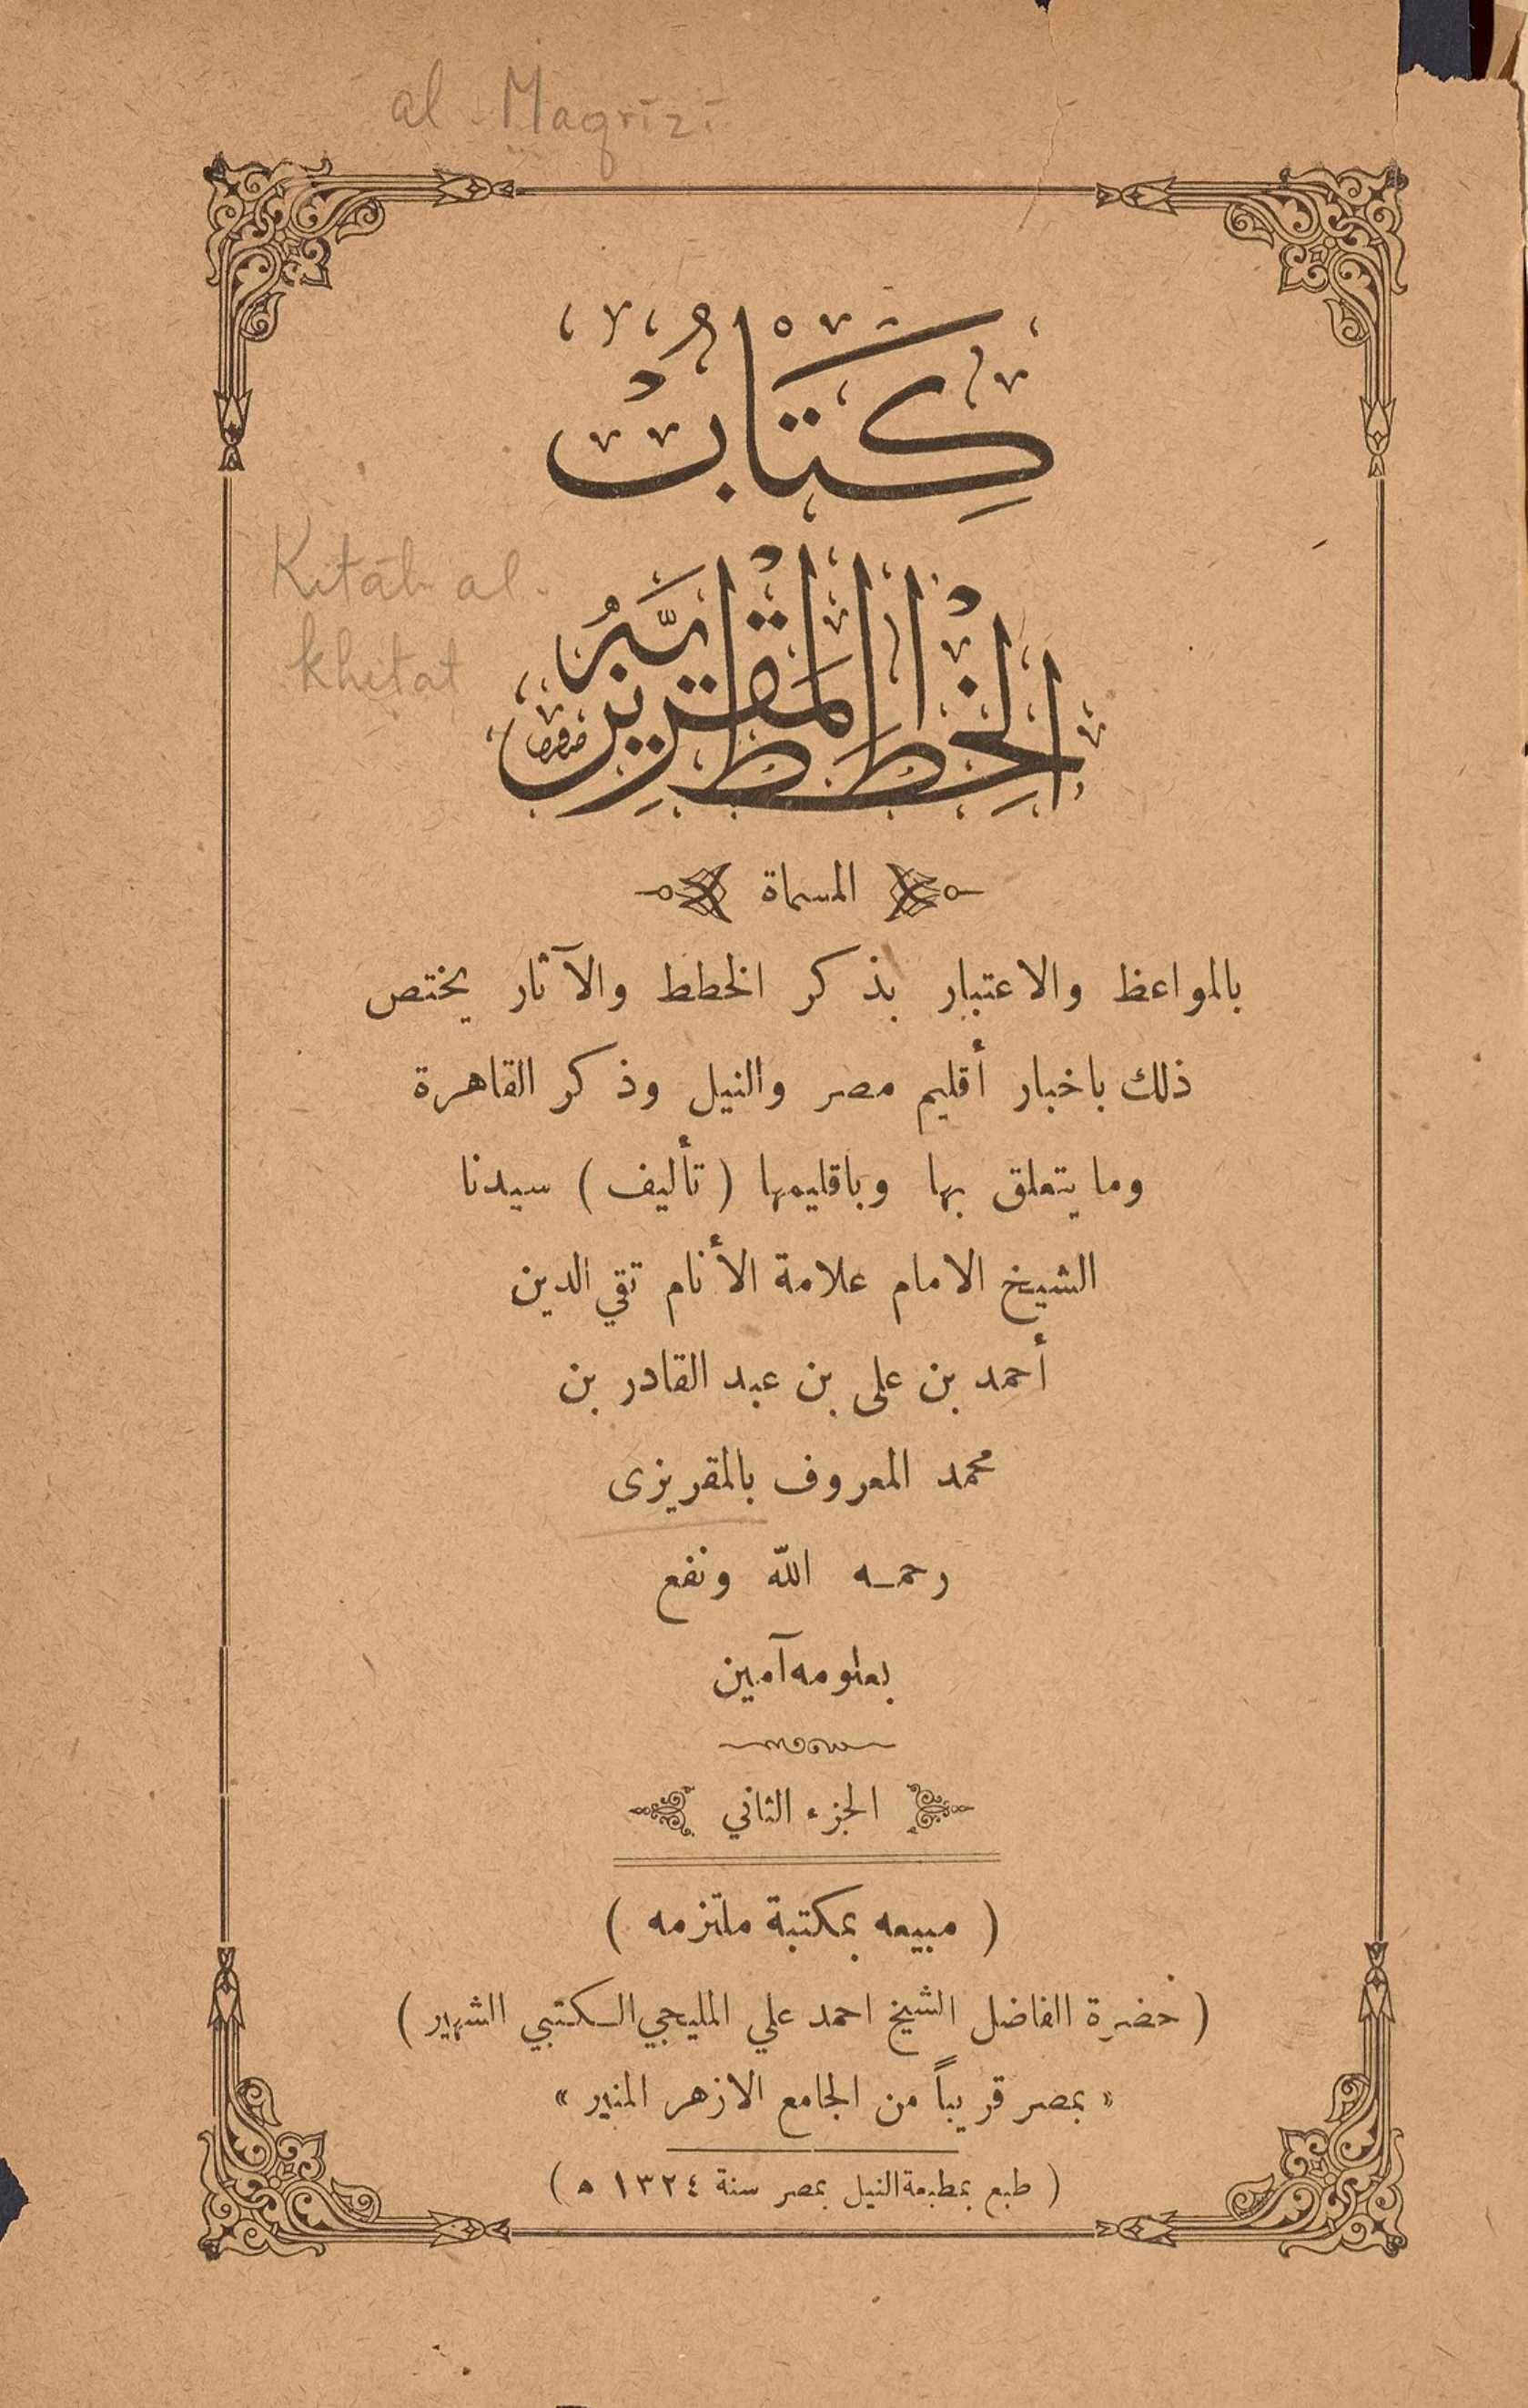 al-Maqrīzī
كِتَابْ
Kitāb al-
khitat
الخِطَطْ المَقْرِيزِيَّه
المسماة
بالمواعظ والاعتبار بذكر الخطط والآثار يختص
ذلك باخبار أقليم مصر والنيل وذكر القاهرة
وما يتعلق بها وباقليمها (تأليف) سيدنا
الشيخ الامام علامة الأنام تقي الدين
أحمد بن على بن عبد القادر بن
محمد المعروف بالمقريزى
رحمه الله ونفع
بعلومه آمين
الجزء الثاني
(مبيعه بمكتبة ملتزمه)
(حضرة الفاضل الشيخ احمد علي المليجي الكتبي الشهير)
«بمصر قريباً من الجامع الازهر المنير»
(طبع بمطبعة النيل بمصر سنة ١٣٢٤ ه)